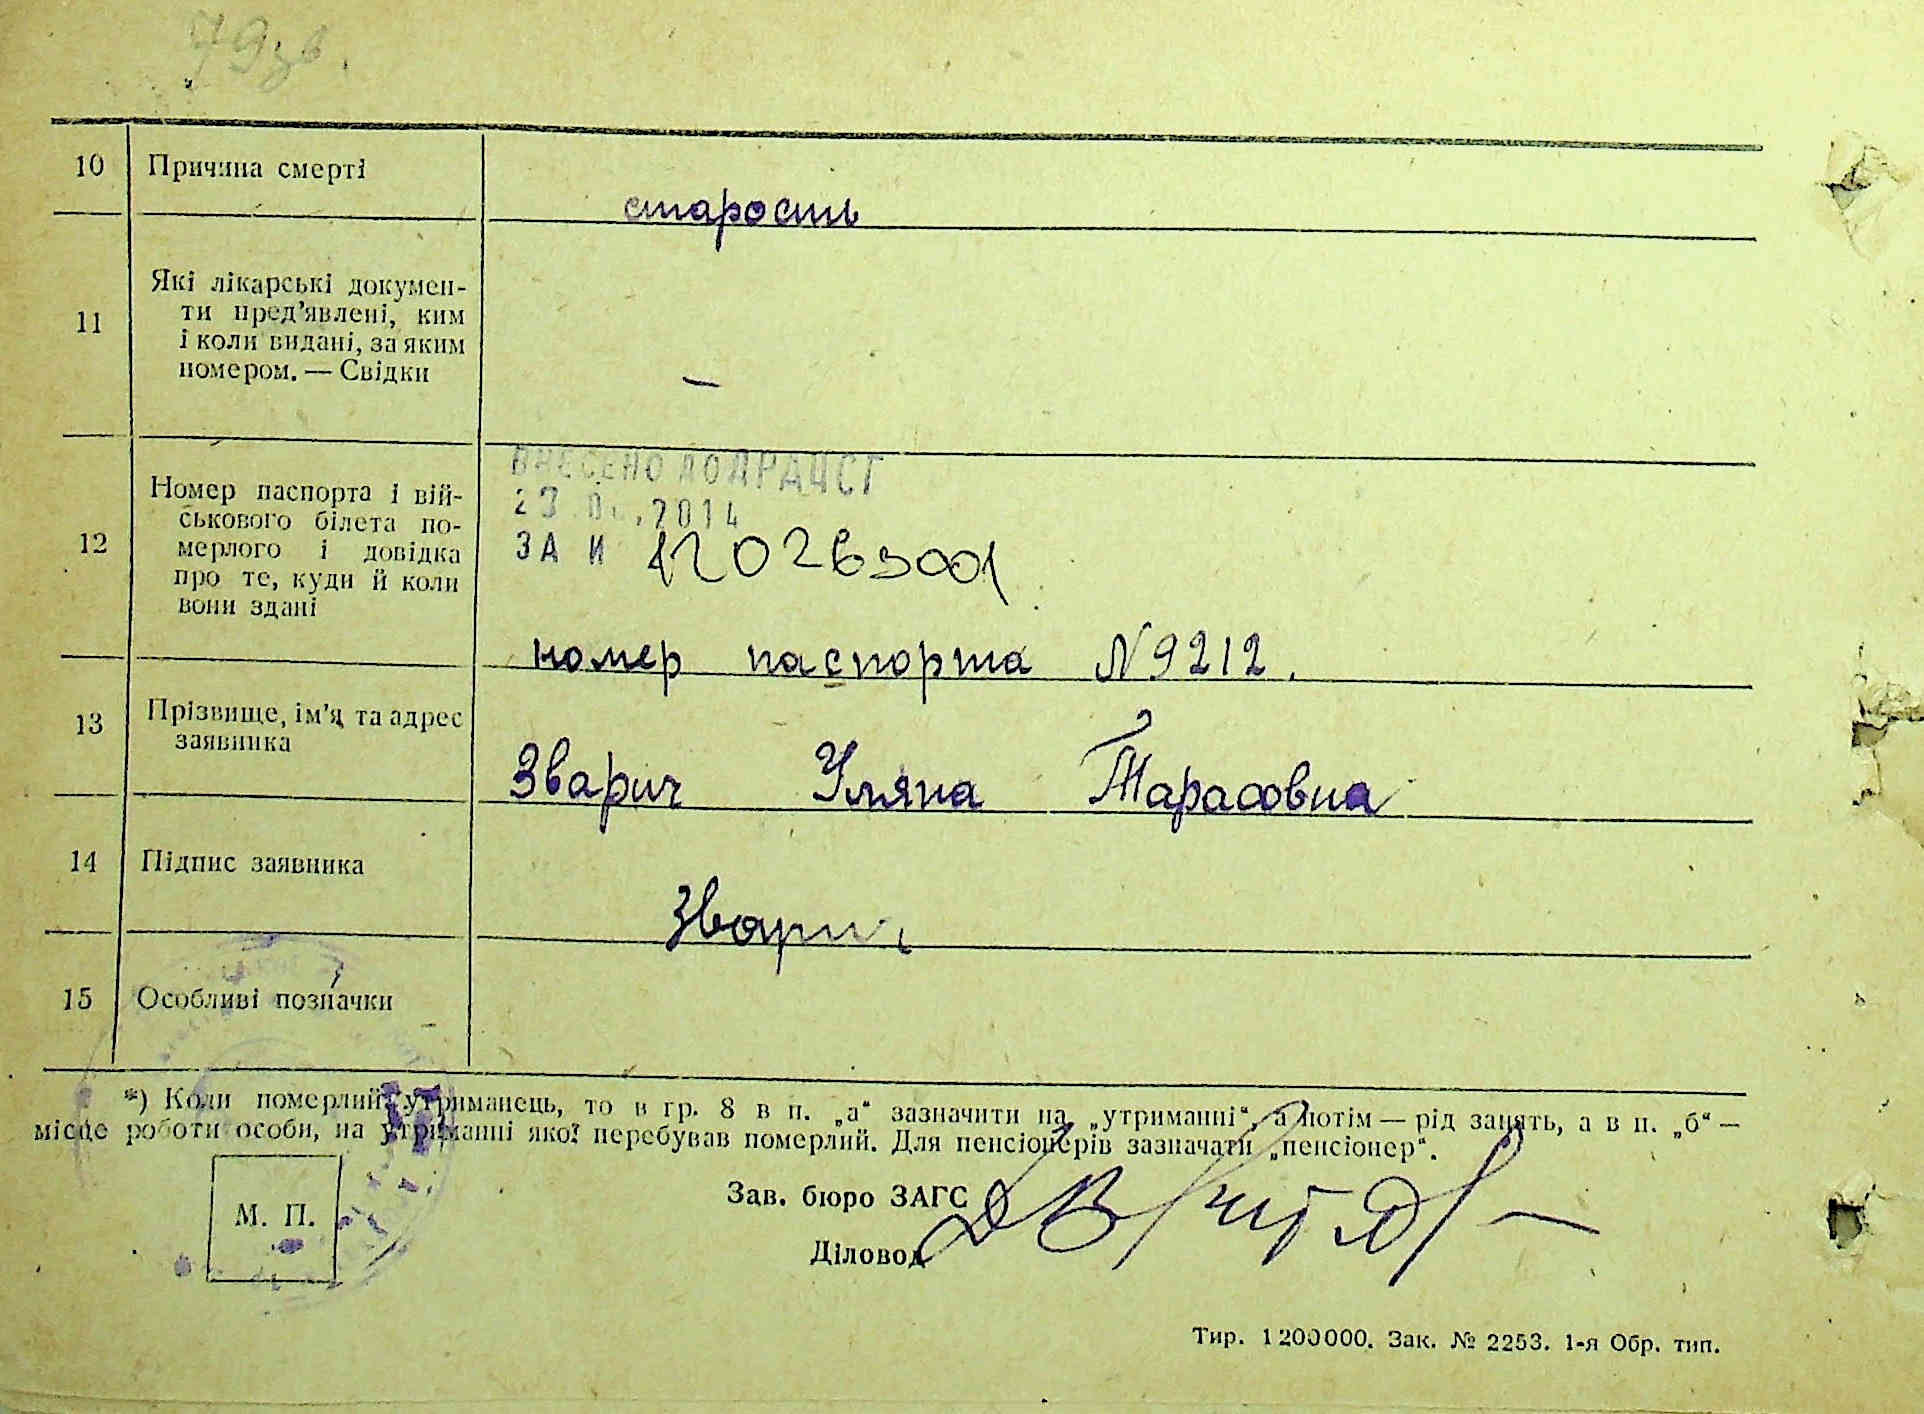 79зв.
10 Причина смерті
старость
11 Які лікарські докумен-
ти пред'явлені, ким
і коли видані, за яким
номером. — Свідки
—
12 Номер паспорта і вій-
ськового білета по-
мерлого і довідка
про те, куди й коли
вони здані
ВНЕСЕНО ДО ДРАЦСГ
2014
ЗА №
номер паспорта №9212.
13 Прізвище, ім'я та адрес
заявника
Зварич Уляна Тарасовна
14 Підпис заявника
Зварич
15 Особливі позначки
*) Коли померлий утриманець, то в гр. 8 в п. „а“ зазначити на „утриманні“, а потім — рід занять, а в п. „б“ —
місце роботи особи, на утриманні якої перебував померлий. Для пенсіонерів зазначати „пенсіонер“.
М. П.
Зав. бюро ЗАГС
Діловод
Тир. 1200000. Зак. № 2253. 1-я Обр. тип.